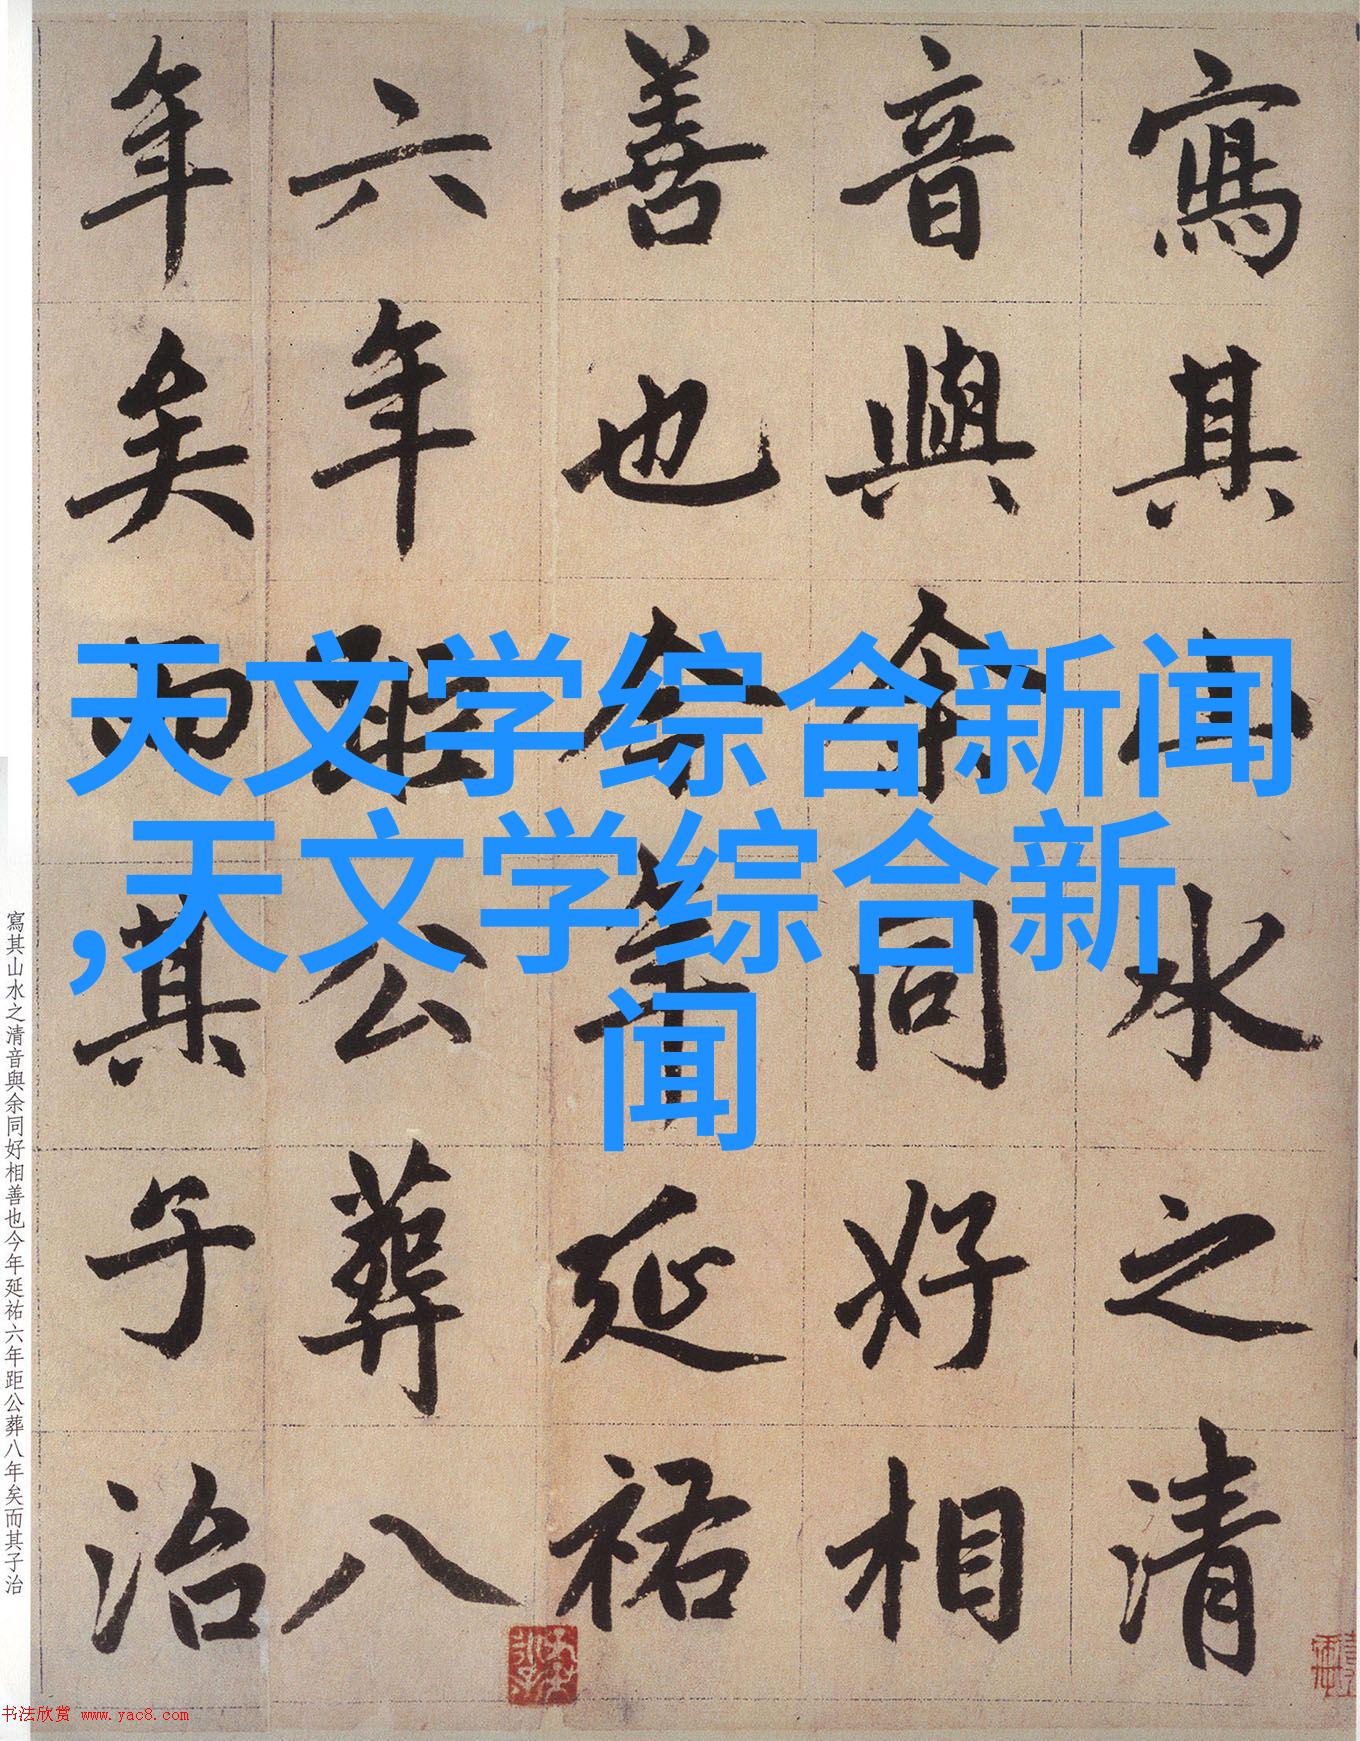 寫其山水之清
音與余同好相
善也今年延祐
六年距公葬八
年矣而其子治
天文学综合新闻
,天文学综合新
闻
寫其山水之清音與余同好相善也今年延祐六年距公葬八年矣而其子治
书法欣赏 www.yac8.com